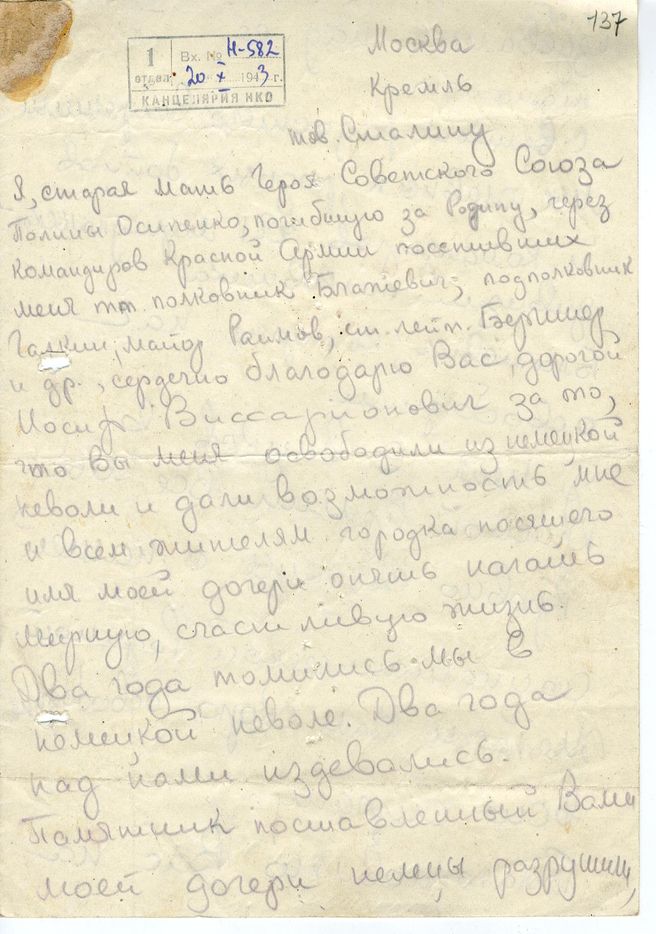 137
1 отдел
Вх. № Н-582
20 X 1943 г.
КАНЦЕЛЯРИЯ НКО
Москва
Кремль
тов. Сталину
Я, старая мать Героя Советского Союза
Полины Осипенко, погибшую за Родину, через
командиров Красной Армии посетивших
меня тт. полковник Блажевич, подполковник
Галкин, майор Раимов, ст. лейт.
и др., сердечно благодарю Вас, дорогой
Иосиф Виссарионович за то,
что Вы меня освободили из немецкой
неволи и дали возможность мне
и всем жителям городка носящего
имя моей дочери опять начать
мирную, счастливую жизнь.
Два года томились мы в
немецкой неволе. Два года
над нами издевались.
Памятник поставленный Вами
моей дочери немцы разрушили,